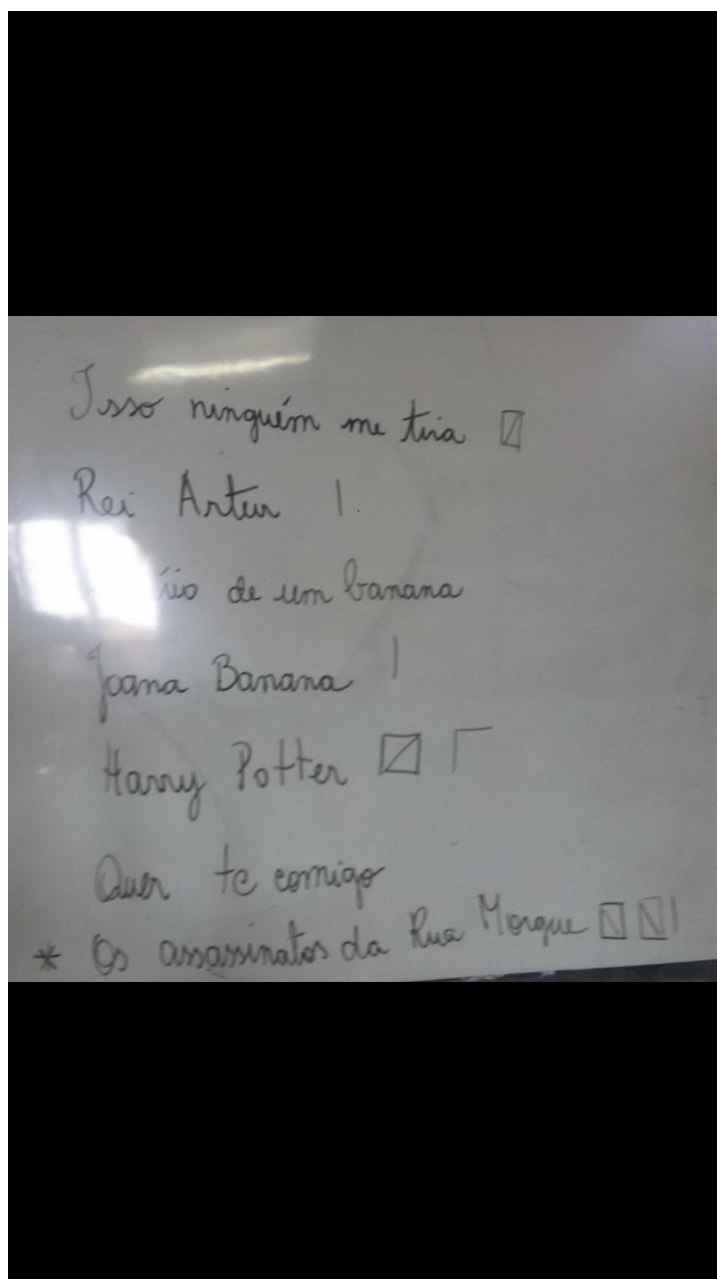 Isso ninguém me tira
Rei Artur
de um banana
Joana Banana
Harry Potter
Quer tc comigo
* Os assassinatos da Rua Morgue